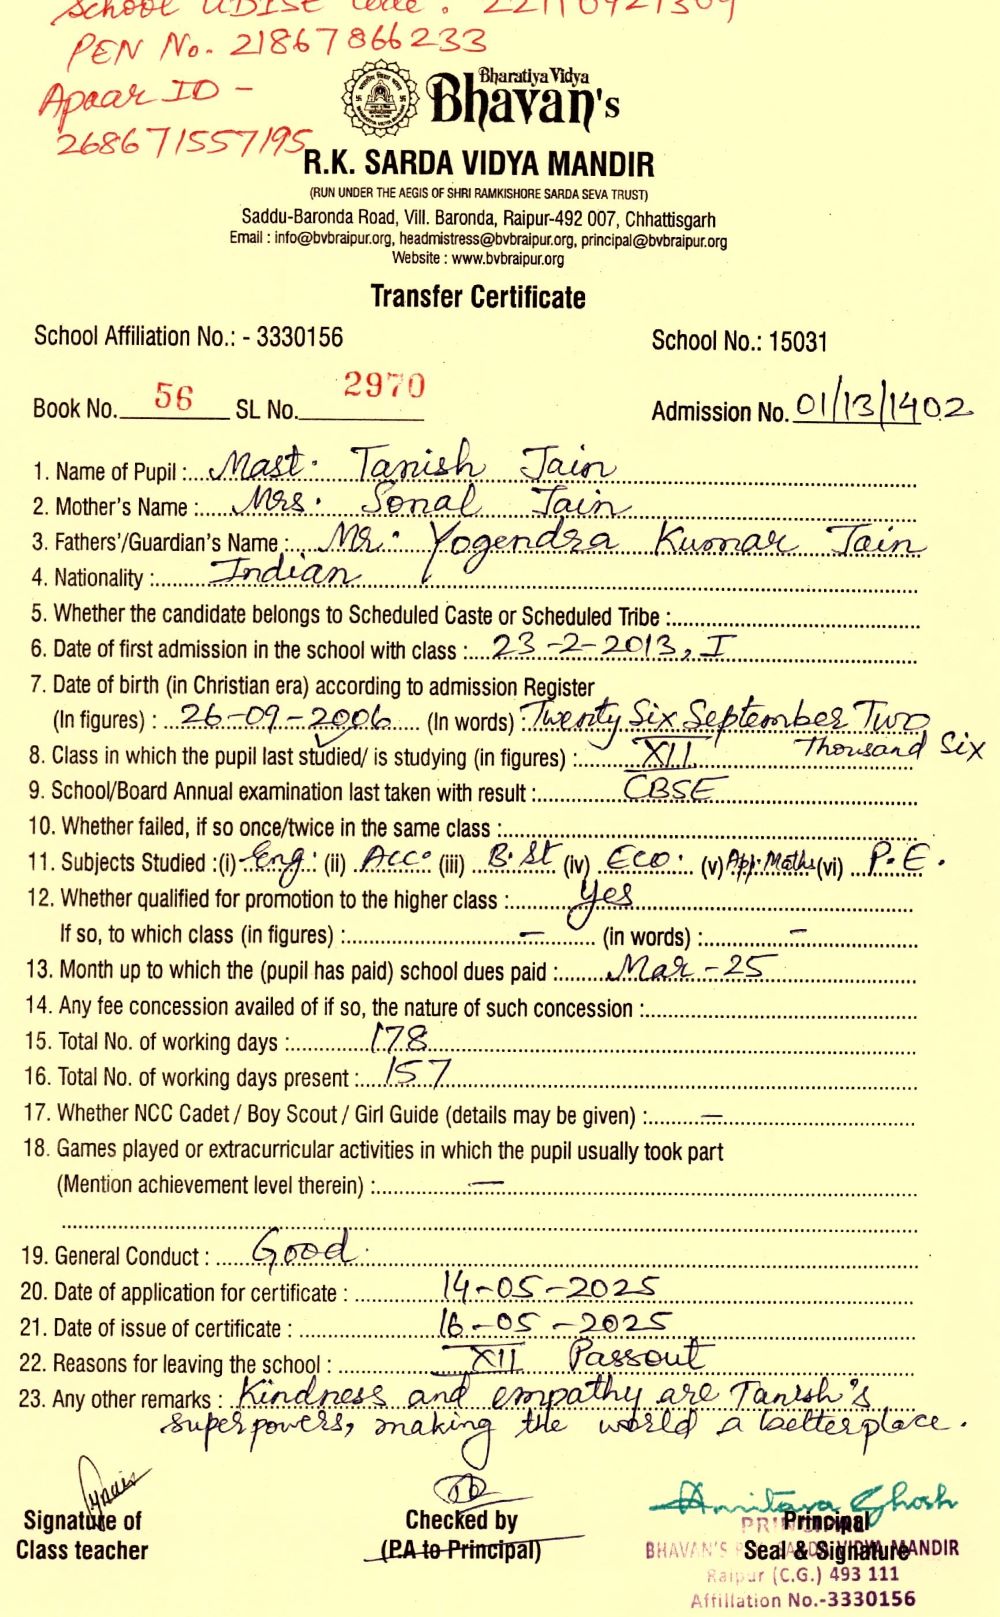 School UDISE Code :
PEN No. 21867866233
Apaar ID -
268671557195
Bharatiya Vidya
Bhavan's
R.K. SARDA VIDYA MANDIR
(RUN UNDER THE AEGIS OF SHRI RAMKISHORE SARDA SEVA TRUST)
Saddu-Baronda Road, Vill. Baronda, Raipur-492 007, Chhattisgarh
Email : info@bvbraipur.org, headmistress@bvbraipur.org, principal@bvbraipur.org
Website : www.bvbraipur.org
Transfer Certificate
School Affiliation No.: - 3330156 School No.: 15031
Book No. 56 SL No. 2970 Admission No. 01/13/1402
1. Name of Pupil : Mast. Tanish Jain
2. Mother's Name : Mrs. Sonal Jain
3. Fathers'/Guardian's Name : Mr. Yogendra Kumar Jain
4. Nationality : Indian
5. Whether the candidate belongs to Scheduled Caste or Scheduled Tribe :
6. Date of first admission in the school with class : 23-2-2013, I
7. Date of birth (in Christian era) according to admission Register
(In figures) : 26-09-2006 (In words) : Twenty Six September Two
Thousand Six
8. Class in which the pupil last studied/ is studying (in figures) : XII
9. School/Board Annual examination last taken with result : CBSE
10. Whether failed, if so once/twice in the same class :
11. Subjects Studied :(i) Eng. (ii) Acc. (iii) B.St (iv) Eco. (v) App. Maths (vi) P.E.
12. Whether qualified for promotion to the higher class : Yes
If so, to which class (in figures) : - (in words) : -
13. Month up to which the (pupil has paid) school dues paid : Mar-25
14. Any fee concession availed of if so, the nature of such concession :
15. Total No. of working days : 178
16. Total No. of working days present : 157
17. Whether NCC Cadet / Boy Scout / Girl Guide (details may be given) : -
18. Games played or extracurricular activities in which the pupil usually took part
(Mention achievement level therein) : -
19. General Conduct : Good.
20. Date of application for certificate : 14-05-2025
21. Date of issue of certificate : 16-05-2025
22. Reasons for leaving the school : XII Passout
23. Any other remarks : Kindness and empathy are Tanish's
superpowers, making the world a better place.
Amitava Ghosh
Signature of Checked by Principal
Class teacher (P.A to Principal) Seal & Signature
PRINCIPAL
BHAVAN'S R.K. SARDA VIDYA MANDIR
Raipur (C.G.) 493 111
Affiliation No.-3330156